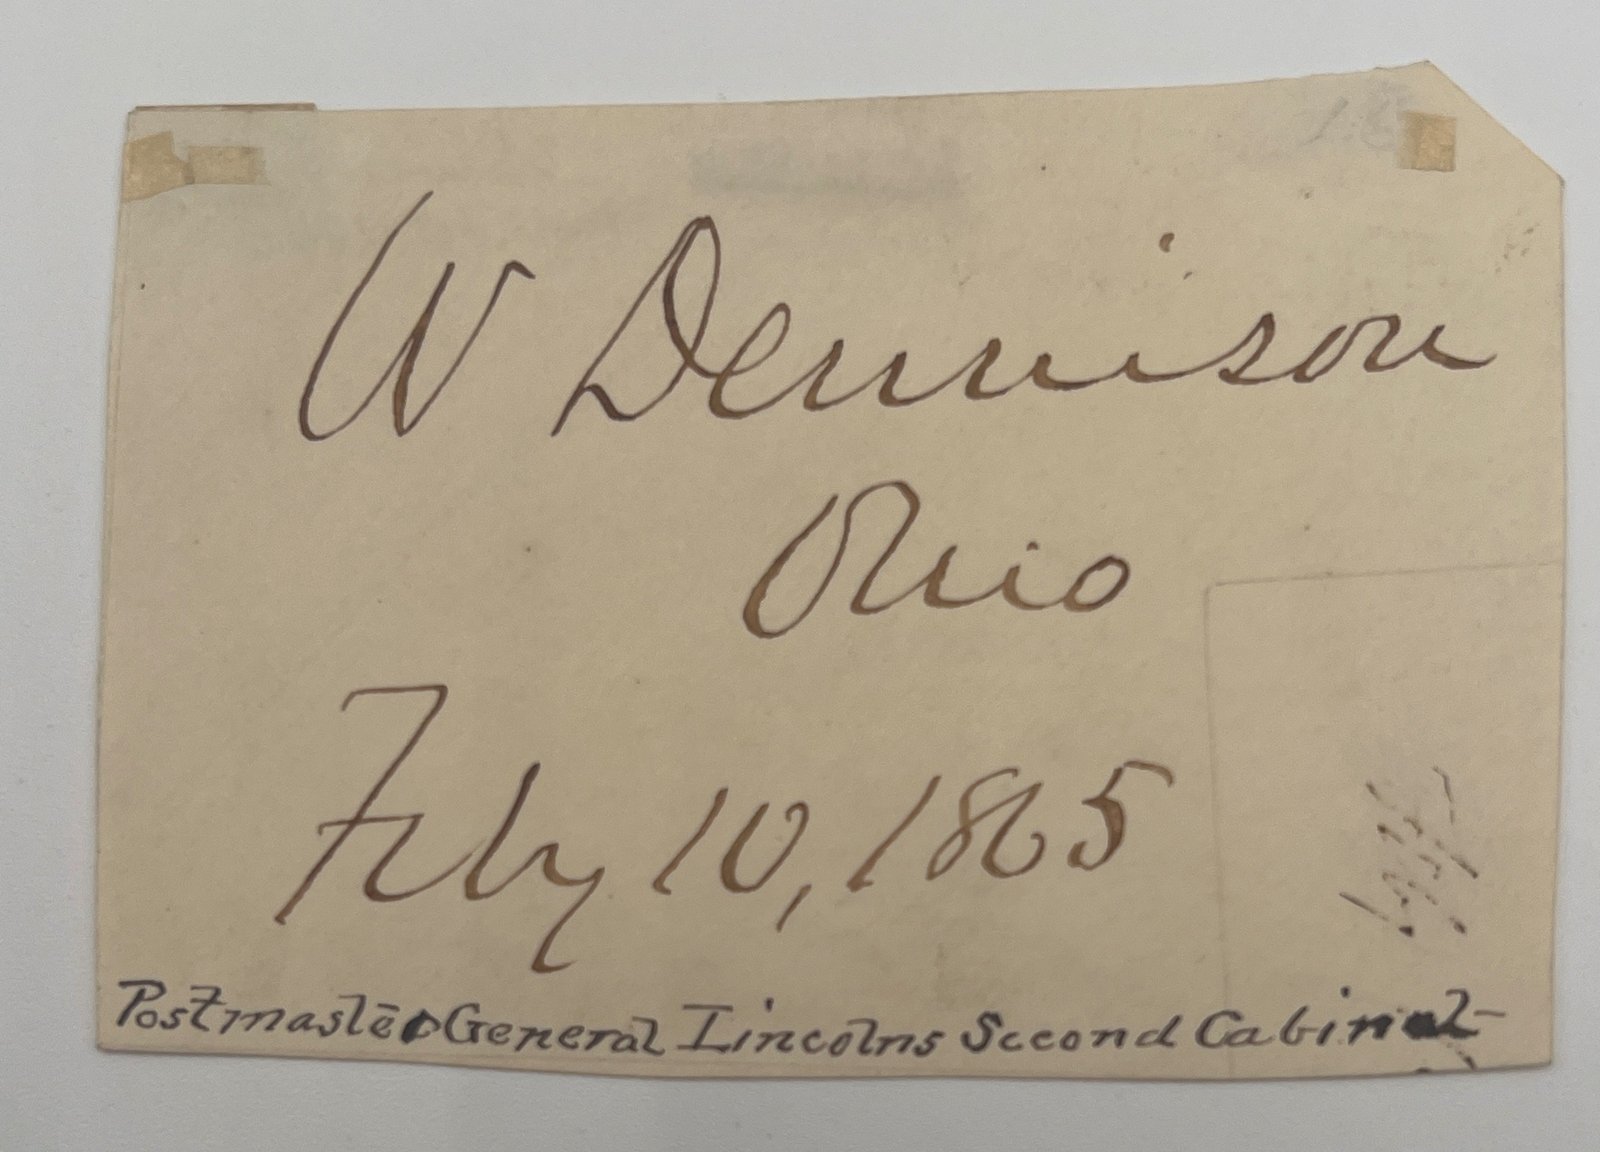 W Dennison
Ohio
Feby 10, 1865
Postmaster General Lincolns Second Cabinet